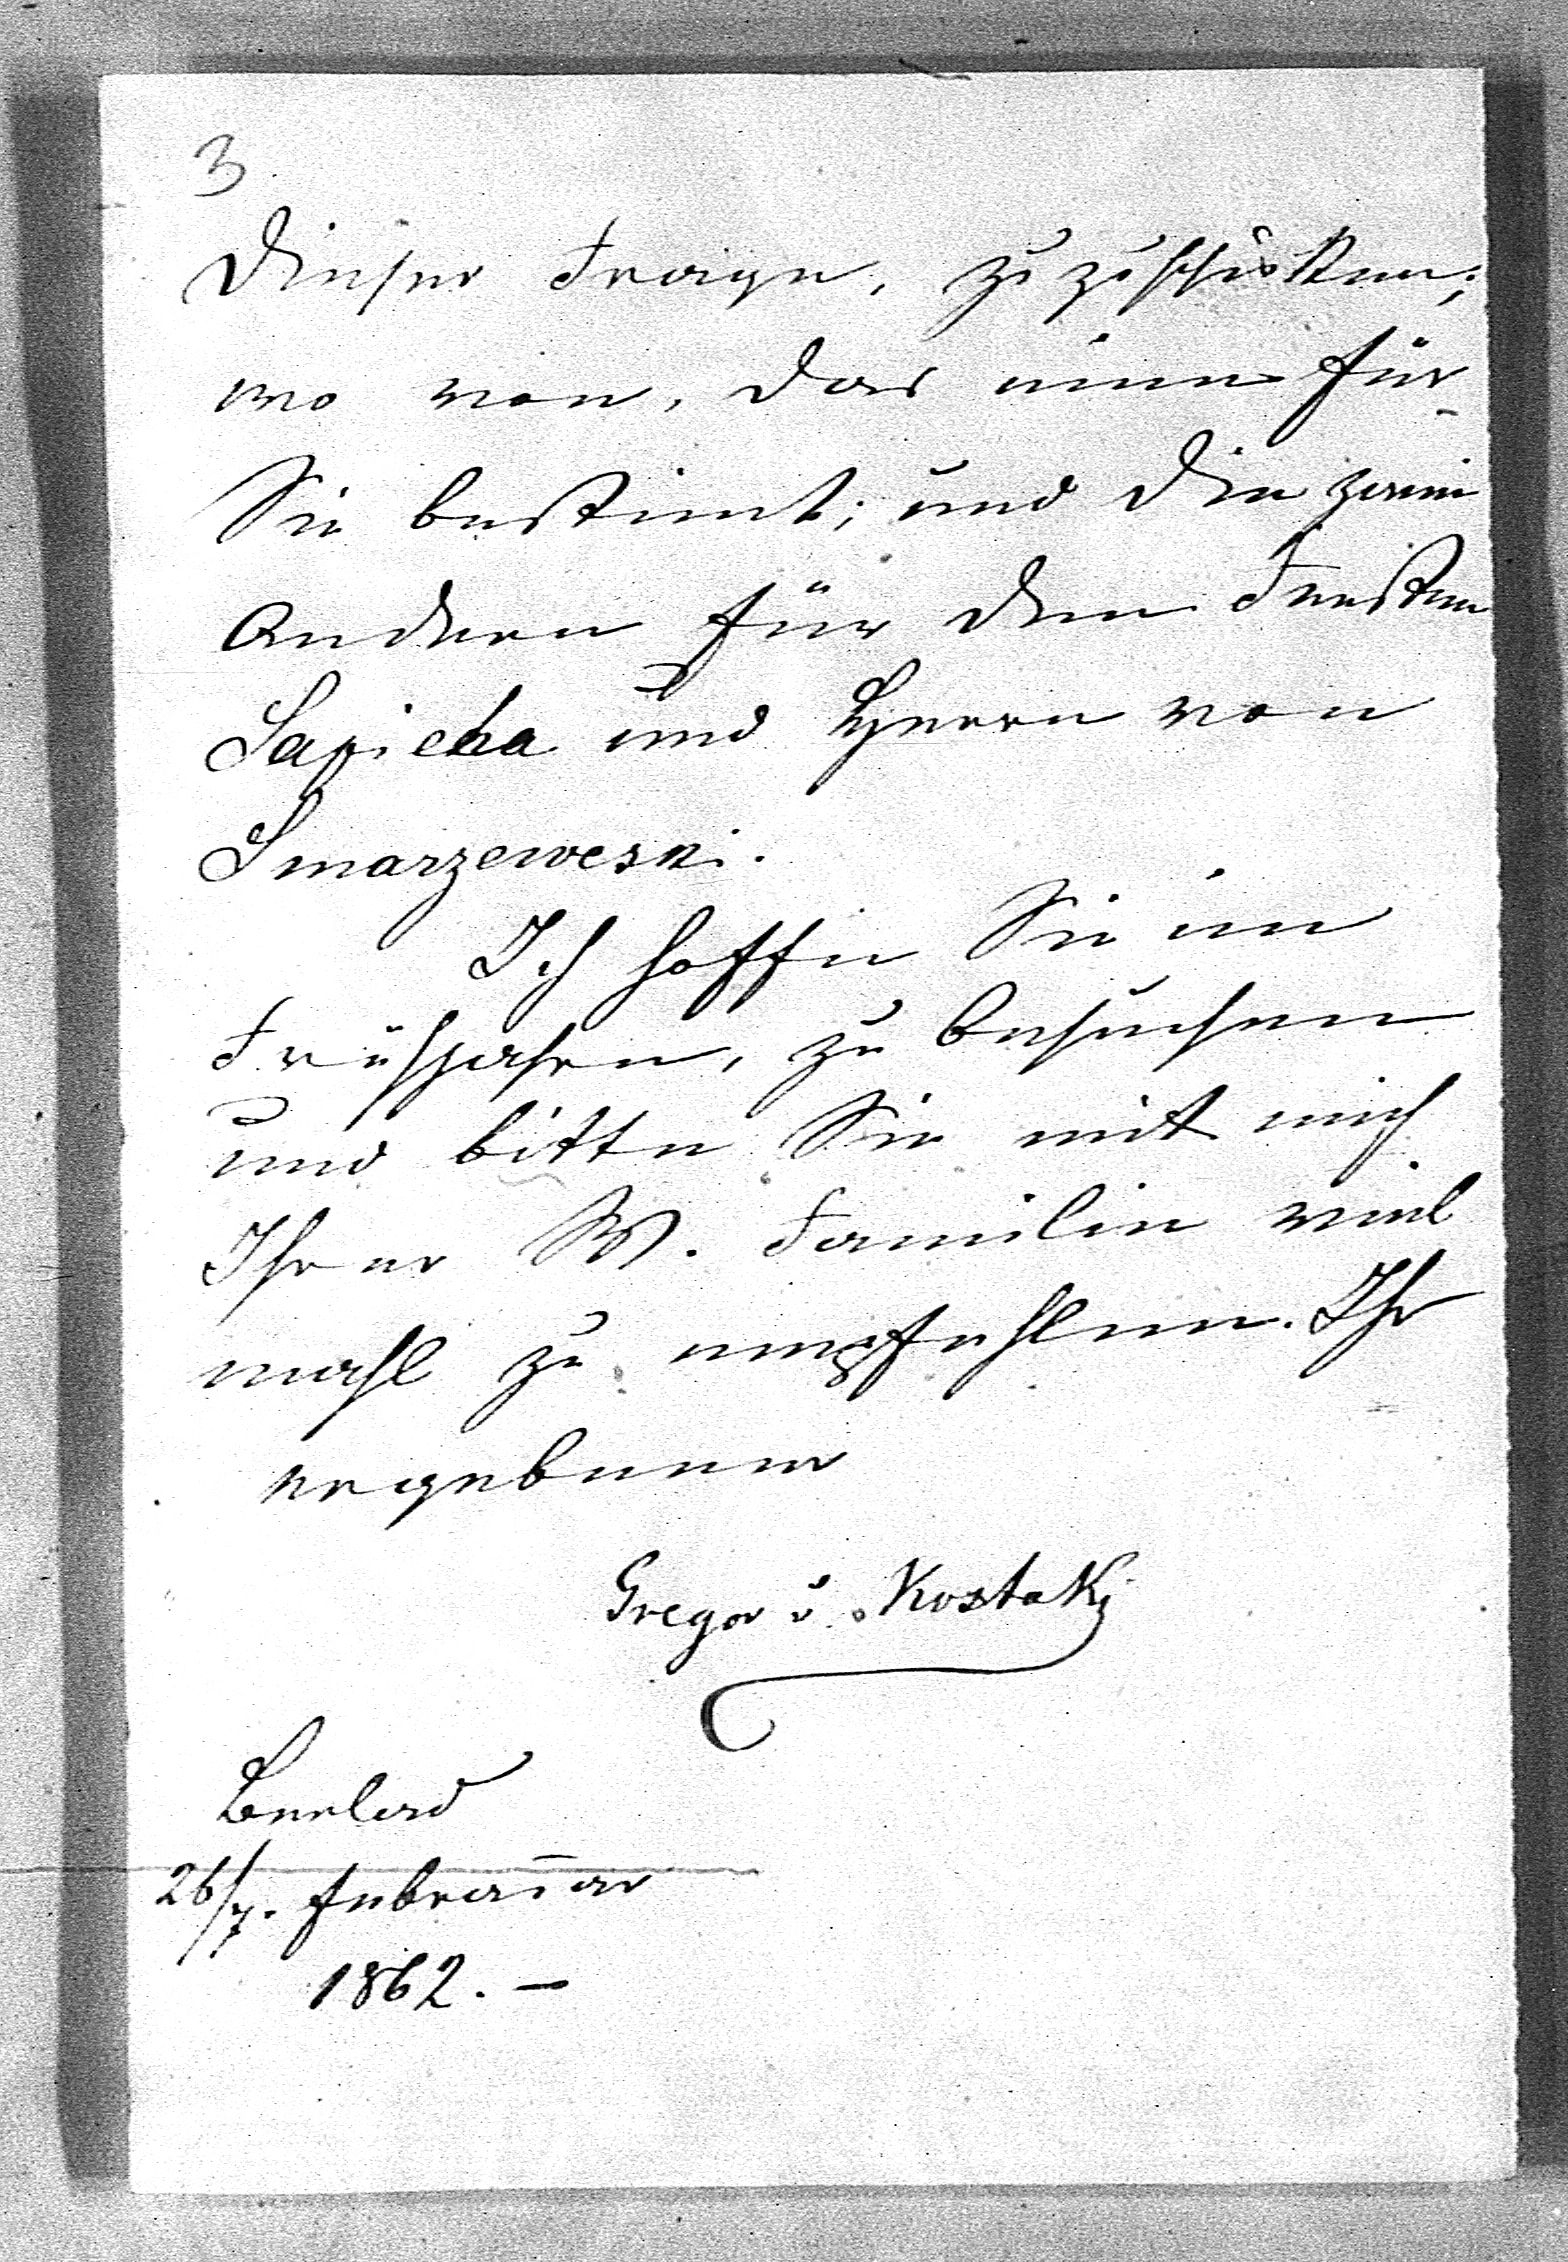 3
dieser Frage, zuzuschicken;
wo von, das eine für
Sie bestimt; und die zwei
andern für den Fursten
Sapieha und Herrn von
Smarzeweski.
Ich hoffe Sie im
Frühjahre, zu besuchen
und bitte Sie mit mich
Ihrer W. Familie viel
mahl zu empfehlen. Ihr
ergebener
Gregor v. Kostaki
Berlad
26/7. Februar
1862. –